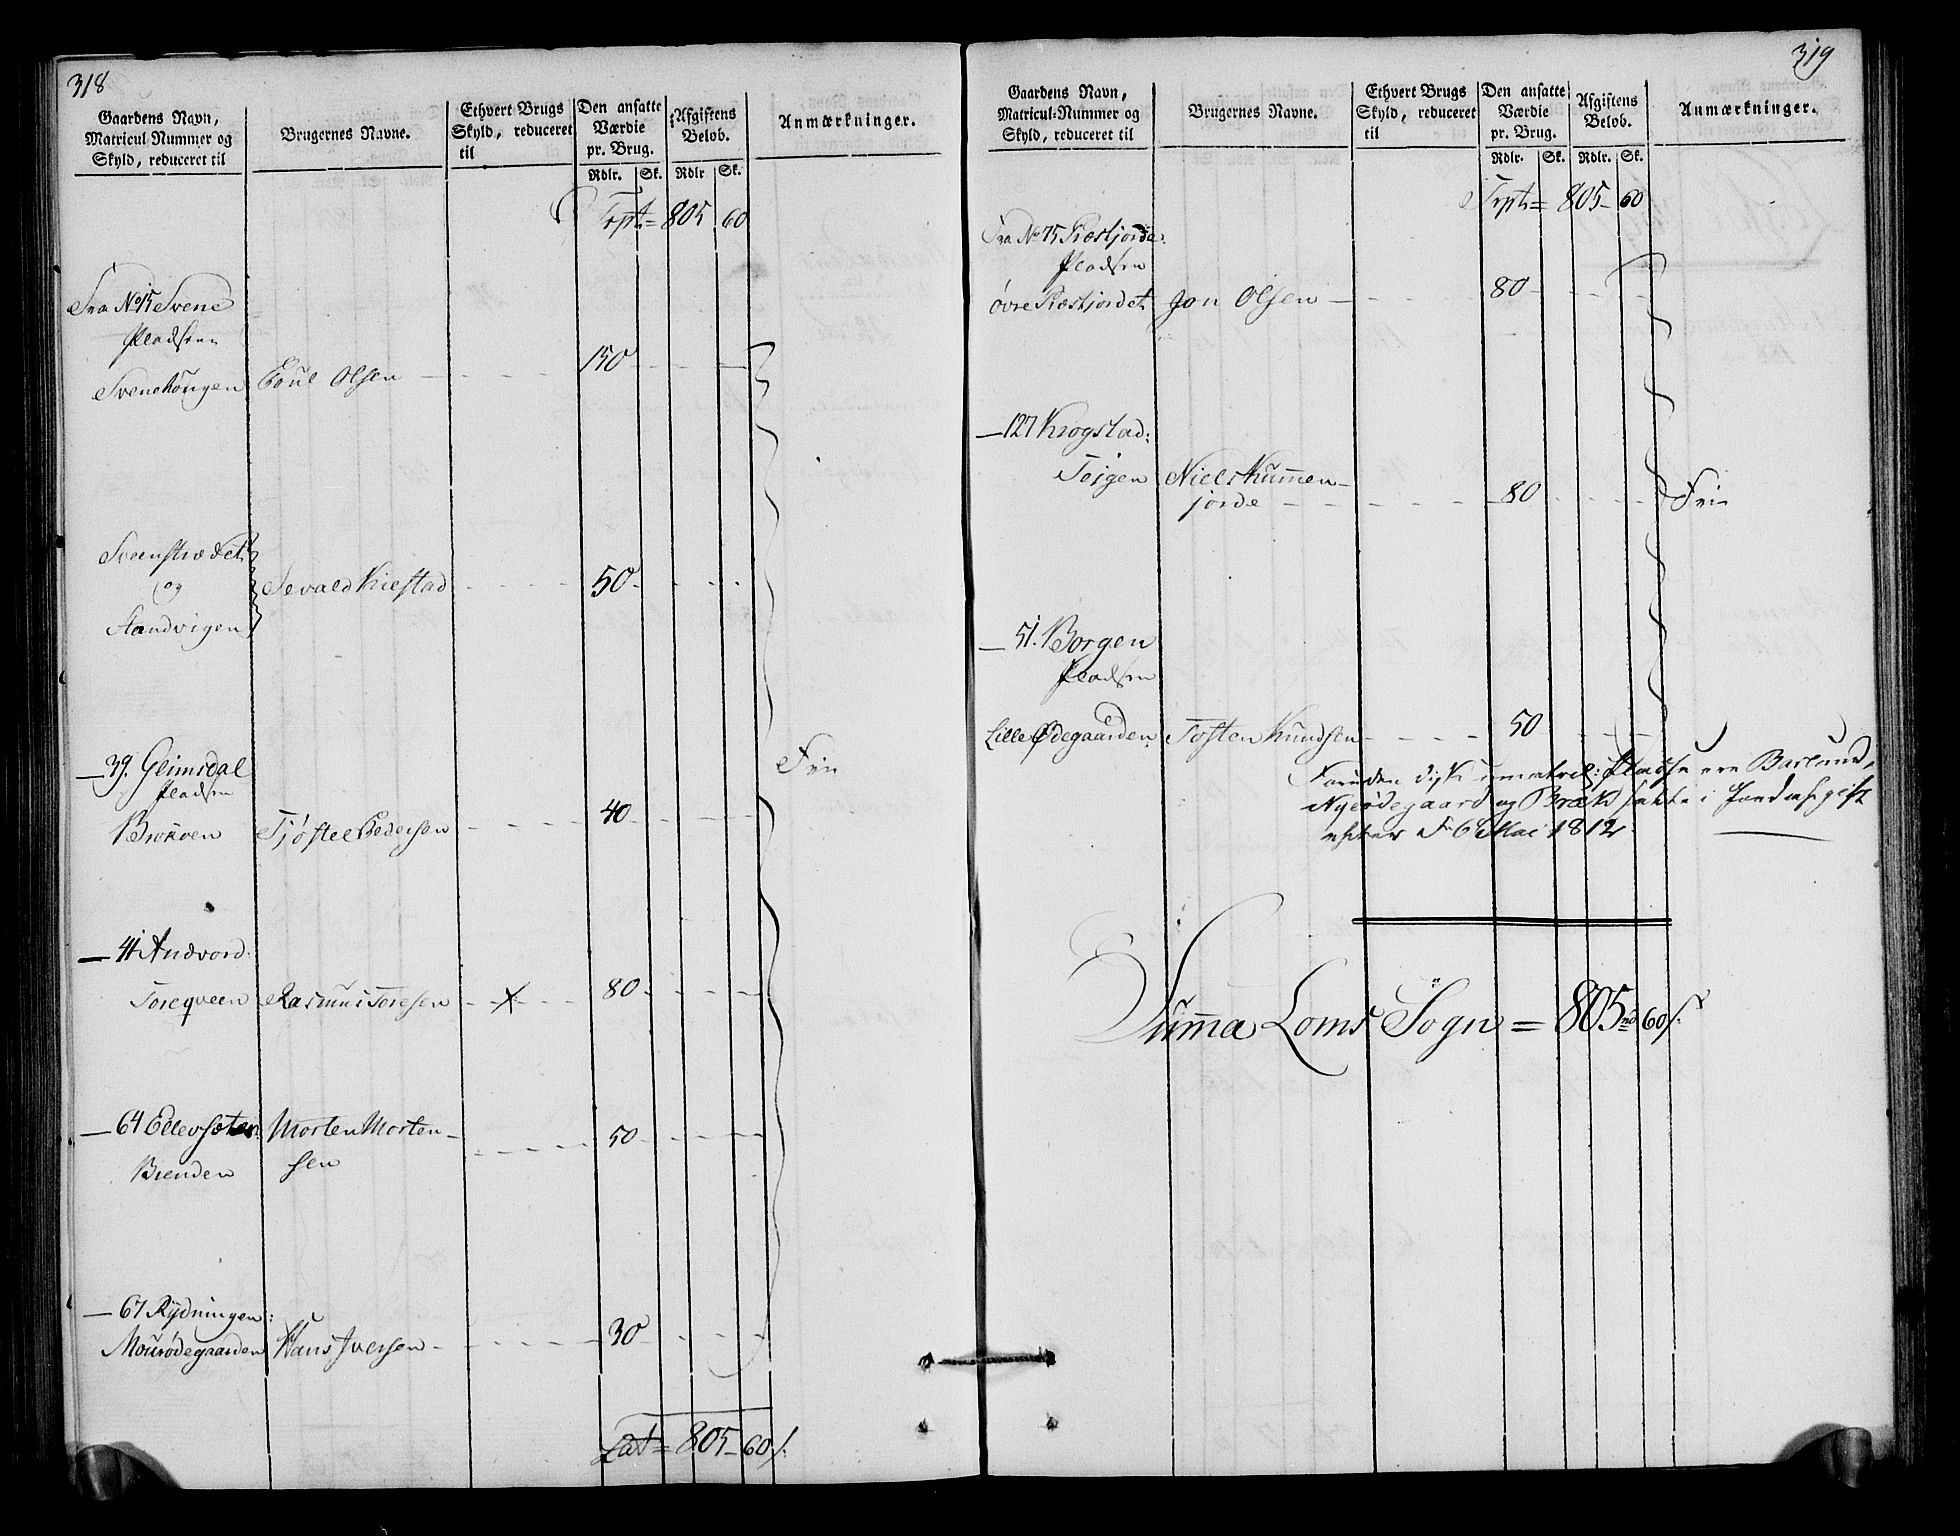 318
Gaardens Navn,
Matricul Nummer og
Skyld, reduceret til
Brugernes Navne.
Ethvert Brugs
Skyld, reduceret
til
Den ansatte
Værdie
pr. Brug.
Rdlr. Sk.
Afgiftens
Beløb.
Rdlr Sk.
Anmærkninger.
Trpt = 805 60
Fra No 15 Svene
Pladsen
Svenehougen Poul Olsen 150
Sveenstrædet
og
Sandvigen Sevald Kiestad 50
— 39. Gleimsdal Frie
Pladsen
Broküen Tjøstel Pedersen 40
— 41 Andvord:
Torequeen Rasmus Toresen 80
— 64 Ellevsæter: Morten Morten-
Brenden sen 50
— 67 Rydningen:
Mourødegaarden Hans Iversen 30
Lat = 805 - 60 s:
319
Gaardens Navn,
Matricul-Nummer og
Skyld, reduceret til
Brugernes Navne.
Ethvert Brugs
Skyld, reduceret
til
Den ansatte
Værdie
pr. Brug.
Rdlr. Sk.
Afgiftens
Beløb.
Rdlr. Sk.
Anmærkninger.
Trpt = 805 - 60
Fra No 75 Præstjorde:
Pladsen
øvre Præstjordet Jon Olsen 80
— 127 Krogstad:
Tøjgen Niels Kummen-
jorde 80 Frie
— 51. Borgen
Pladsen
Lille Ødegaarden Tosten Knudsen 50
Foruden disse umatrel: Pladse ere Barlund,
Nyeødegaard og Bræk satte i
efter F 6 Mai 1812.
Summa Loms Sogn = 805 rd 60 s: